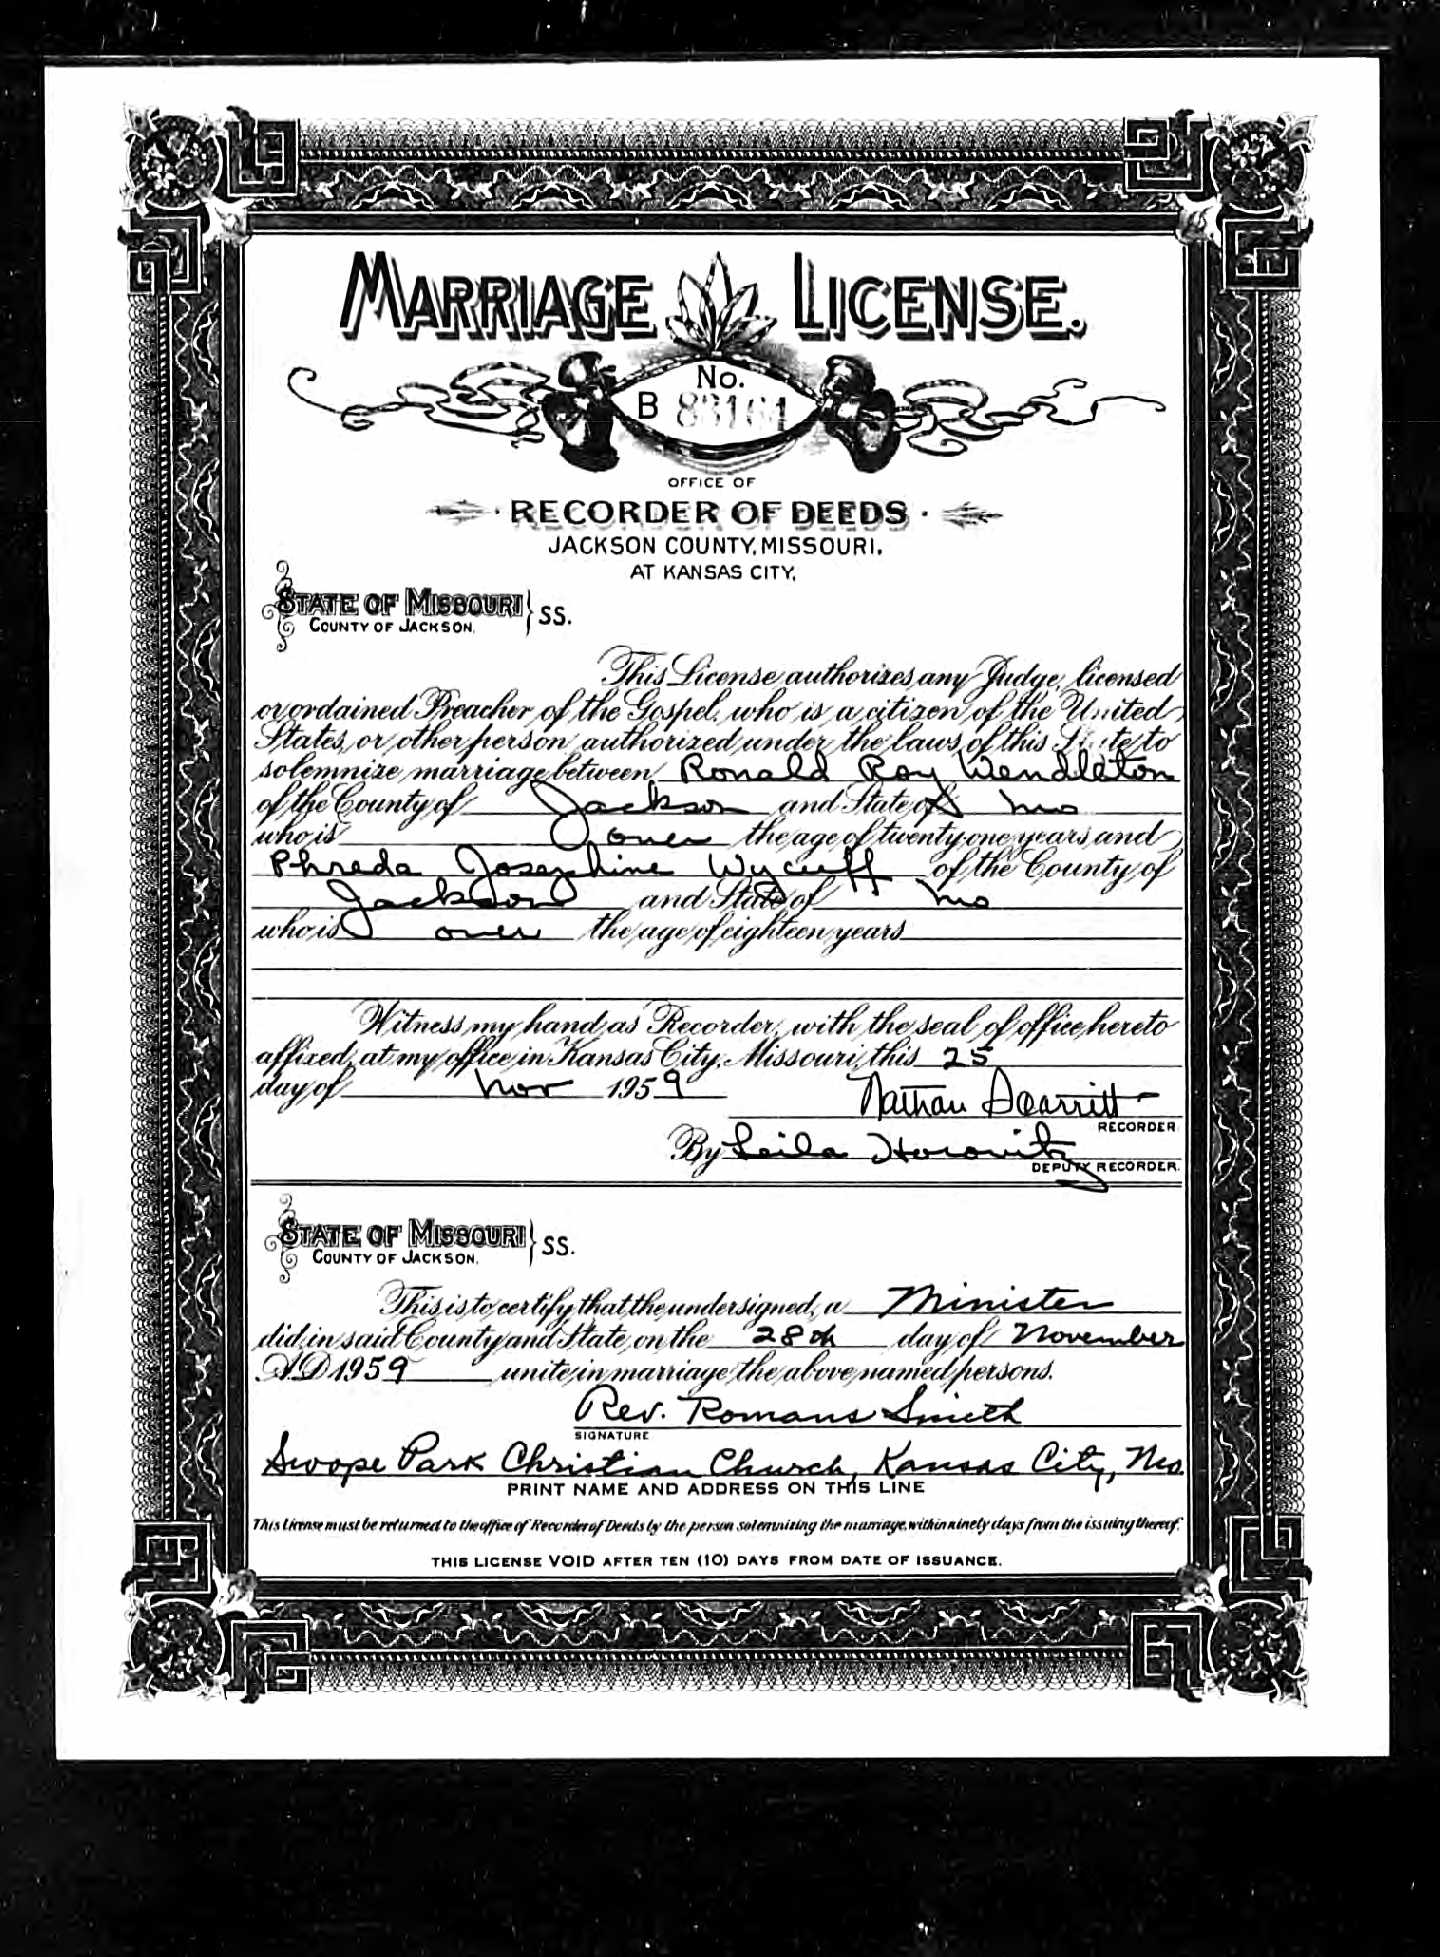 MARRIAGE LICENSE.
No.
B 83161
OFFICE OF
RECORDER OF DEEDS
JACKSON COUNTY, MISSOURI.
AT KANSAS CITY,
STATE OF MISSOURI
COUNTY OF JACKSON. SS.
This License authorizes any Judge, licensed
or ordained Preacher of the Gospel, who is a citizen of the United
States, or other person authorized under the laws of this State to
solemnize marriage between Ronald Roy Wendleton
of the County of Jackson and State of Mo
who is over the age of twenty one years and
Phreda Josephine Wycuff of the County of
Jackson and State of Mo
who is over the age of eighteen years
Witness my hand as Recorder, with the seal of office hereto
affixed, at my office in Kansas City, Missouri, this 25
day of Nov 1959
Nathan Scarritt
RECORDER.
By Leila Horowitz
DEPUTY RECORDER.
STATE OF MISSOURI
COUNTY OF JACKSON. SS.
This is to certify that the undersigned, a Minister
did in said County and State, on the 28th day of November
A.D. 1959 unite in marriage the above named persons.
Rev. Romans Smith
SIGNATURE
Swope Park Christian Church, Kansas City, Mo.
PRINT NAME AND ADDRESS ON THIS LINE
This License must be returned to the office of Recorder of Deeds by the person solemnizing the marriage, within ninety days from the issuing thereof.
THIS LICENSE VOID AFTER TEN (10) DAYS FROM DATE OF ISSUANCE.